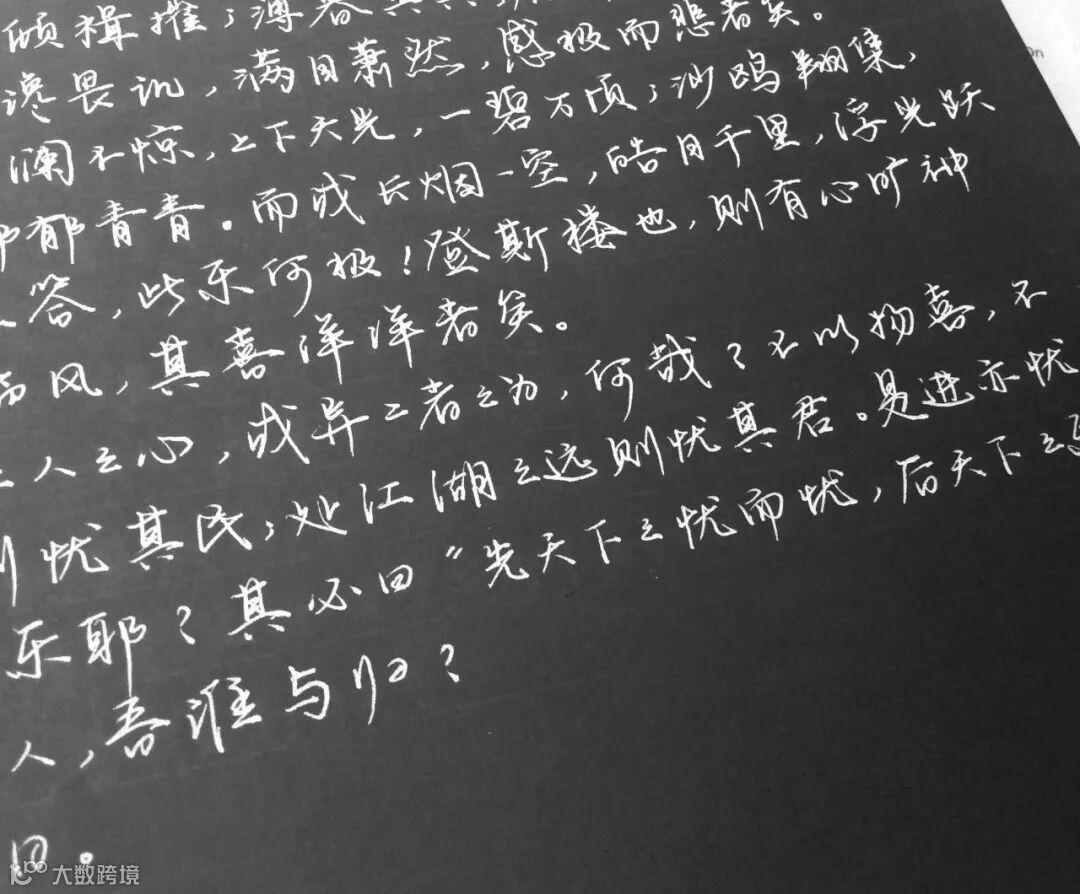 倾楫摧；薄暮冥冥，
谗畏讥，满目萧然，感极而悲者矣。
澜不惊，上下天光，一碧万顷；沙鸥翔集，
郁青青。而或长烟一空，皓月千里，浮光跃
答，此乐何极！登斯楼也，则有心旷神
风，其喜洋洋者矣。
人之心，或异二者之为，何哉？不以物喜，不
则忧其民；处江湖之远则忧其君。是进亦忧
乐耶？其必曰“先天下之忧而忧，后天下之
人，吾谁与归？
日。
大数跨境